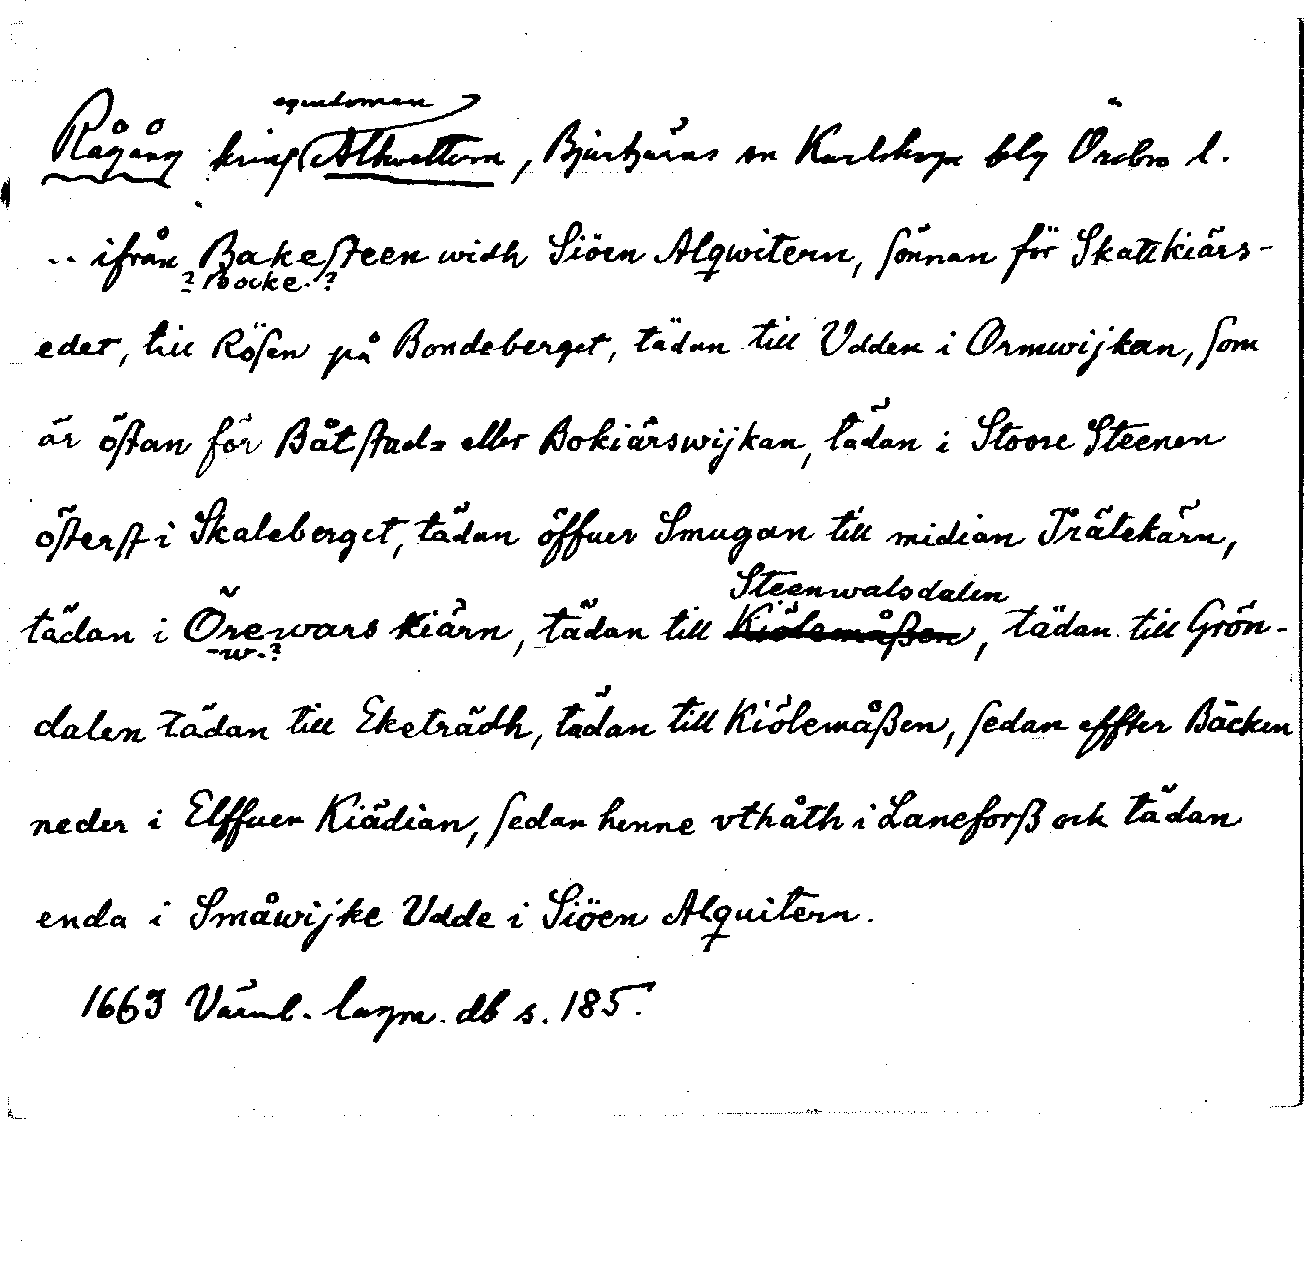 egendomen
Rågång kring Alkvettern, Bjurtjärns sn Karlskoga bslg Örebro l.
.. ifrån Bakesteen widh Siöen Alqwitern, sönnan för Skattkiärs-
? Bocke-?
edet, till Rösen på Bondeberget, tädan till Udden i Ormwijkan, som
är östan för Båtstad= eller Bokiärswijkan, tädan i Stoore Steenen
österst i Skaleberget, tädan öffuer Smugan till midian Trätekärn,
Steenwalsdalen
tädan i Örewars kiärn, tädan till Kiölemåßen, tädan till Grön-
-w-?
dalen tädan till Eketrädh, tädan till Kiölemåßen, sedan effter Bäcken
neder i Elffuer Kiädian, sedan henne vthåth i Laneforß och tädan
enda i Småwijke Udde i Siöen Alquitern.
1663 Värml. lagm. db s. 185.